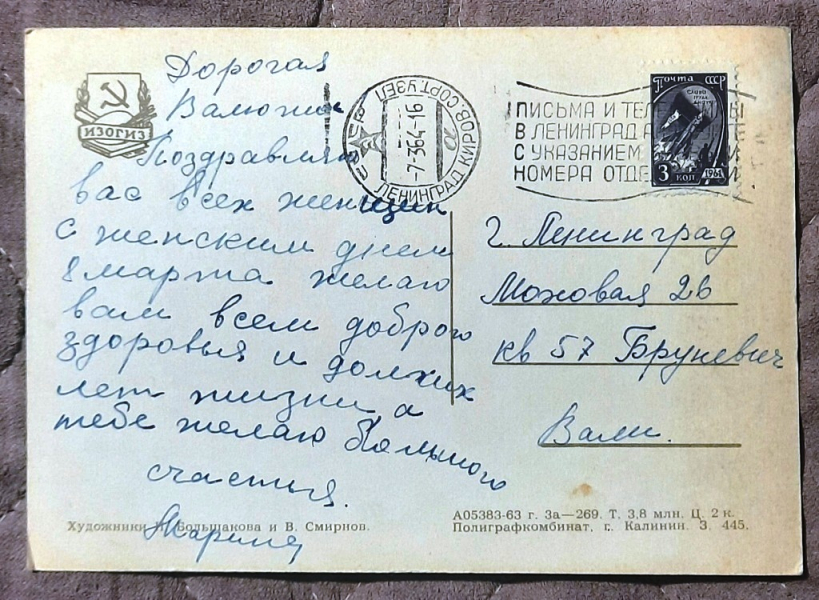 Дорогая
Валюша
Поздравляю
вас всех женщин
с женским днем
8 марта желаю
вам всем доброго
здоровья и долгих
лет жизни а
тебе желаю большого
счастья.
ИЗОГИЗ
ЛЕНИНГРАД КИРОВ. СОРТ. УЗЕЛ
-7-364-16
ПИСЬМА И ТЕЛ
В ЛЕНИНГРАД
С УКАЗАНИЕМ
НОМЕРА ОТДЕ
Почта СССР
3 коп
1964
г. Ленинград
Моховая 26
кв 57 Бруневич
Вали.
Художники Большакова и В. Смирнов.
А05383-63 г. За—269. Т. 3,8 млн. Ц. 2 к.
Полиграфкомбинат, г. Калинин. З. 445.